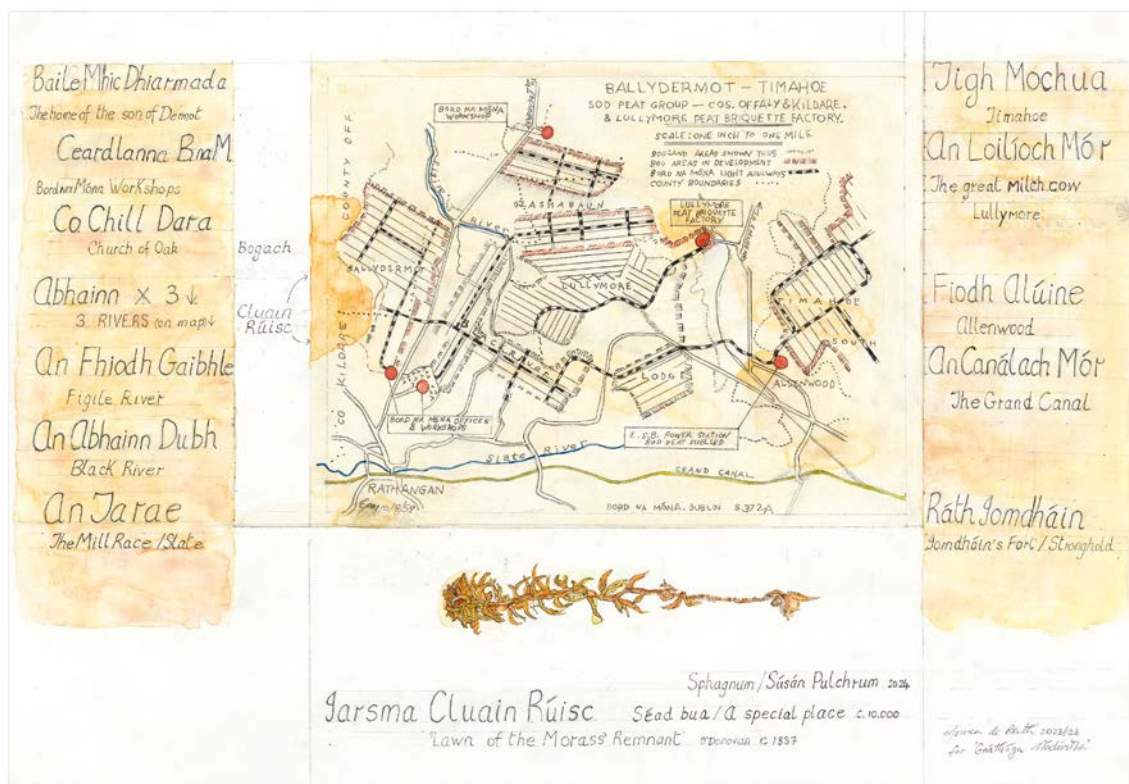 Baile Mhic Dhiarmada
The home of the son of Dermot
Ceardlanna BnaM
Bord na Móna Workshops
Co Chill Dara
Church of Oak
Abhainn x 3 ↓
3 RIVERS (on map)↓
An Fhiodh Gaibhle
Figile River
An Abhainn Dubh
Black River
An Tarae
The Mill Race / Slate
Bogach
Cluain
Rúisc
BALLYDERMOT – TIMAHOE
SOD PEAT GROUP – COS. OFFALY & KILDARE.
& LULLYMORE PEAT BRIQUETTE FACTORY.
SCALE: ONE INCH TO ONE MILE
BOGLAND AREAS SHOWN THUS
BOG AREAS IN DEVELOPMENT
BORD NA MÓNA LIGHT RAILWAYS
COUNTY BOUNDARIES
BORD NA MÓNA
WORKSHOP
COUNTY OFF
CO KILDARE
RIVER
GLASHABAUN
LULLYMORE
PEAT BRIQUETTE
FACTORY
BALLYDERMOT
LULLYMORE
TIMAHOE
SOUTH
LODGE
ALLENWOOD
BORD NA MÓNA OFFICES
& WORKSHOPS
E.S.B. POWER STATION
SOD PEAT FUELLED
Slate River
GRAND CANAL
RATHANGAN
BORD NA MÓNA. DUBLIN S.372.A
Tigh Mochua
Timahoe
An Loilíoch Mór
The great Milch cow
Lullymore
Fiodh Alúine
Allenwood
An Canálach Mór
The Grand Canal
Ráth Iomdháin
Iomdháin's Fort / Stronghold
Sphagnum / Súsán Pulchrum 2024
Iarsma Cluain Rúisc. Séad bua / A special place c.10,000
'Lawn of the Morass' Remnant' O'Donovan C 1837
2023/24
for